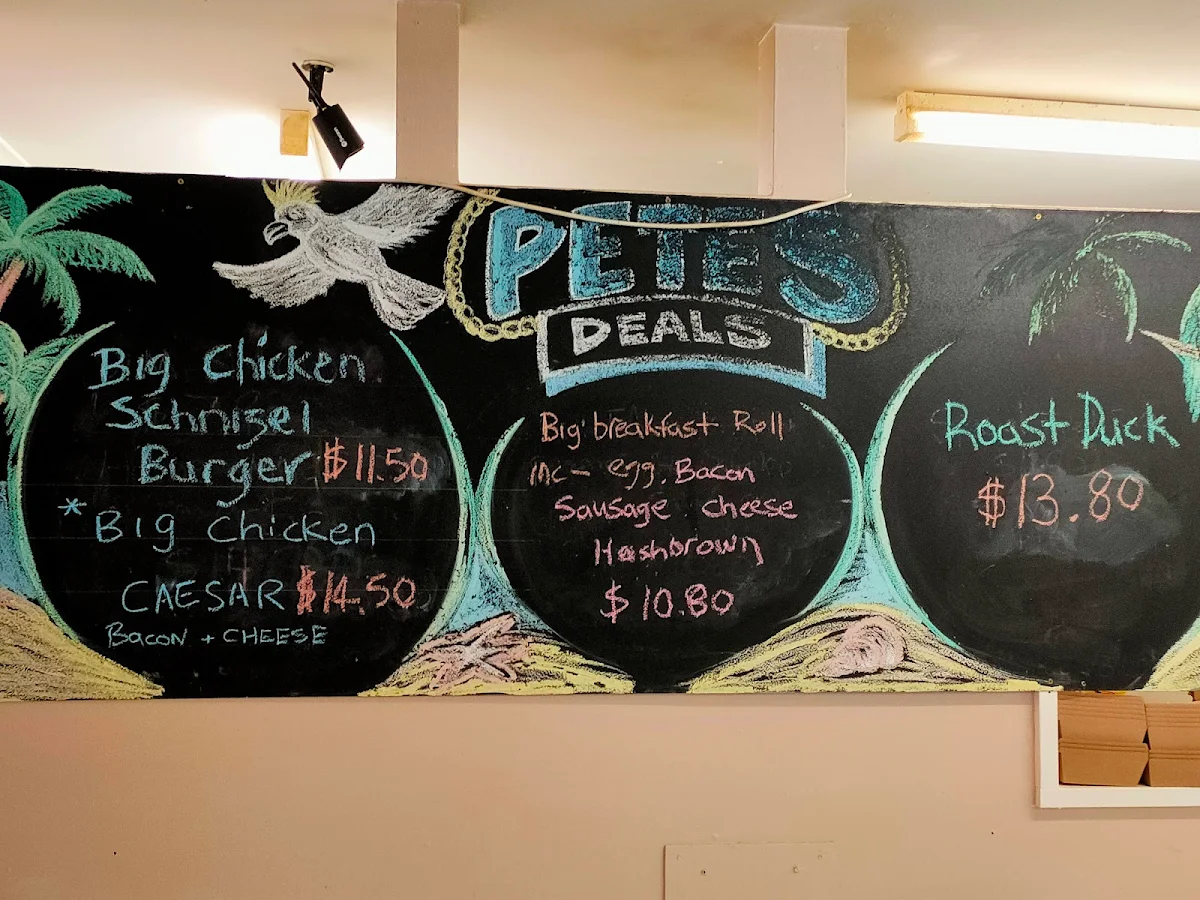 PETE'S
DEALS
Big Chicken
Schnizel
Burger $11.50
* Big Chicken
CAESAR $14.50
BACON + CHEESE
Big breakfast Roll
inc - egg. Bacon
Sausage cheese
Hashbrown
$10.80
Roast Duck
$13.80